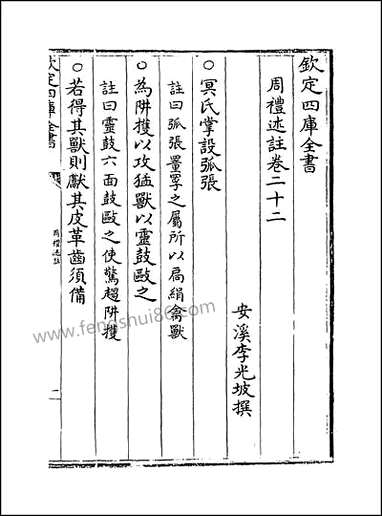 欽定四庫全書
周禮述註卷二十二
安溪李光坡撰
○冥氏掌設弧張
註曰弧張罿罦之屬所以扃絹禽獸
○為阱擭以攻猛獸以靈鼓敺之
註曰靈鼓六面鼓敺之使驚趨阱擭
○若得其獸則獻其皮革齒須備
欽定四庫全書
周禮述註
一
www.fengshui86.com